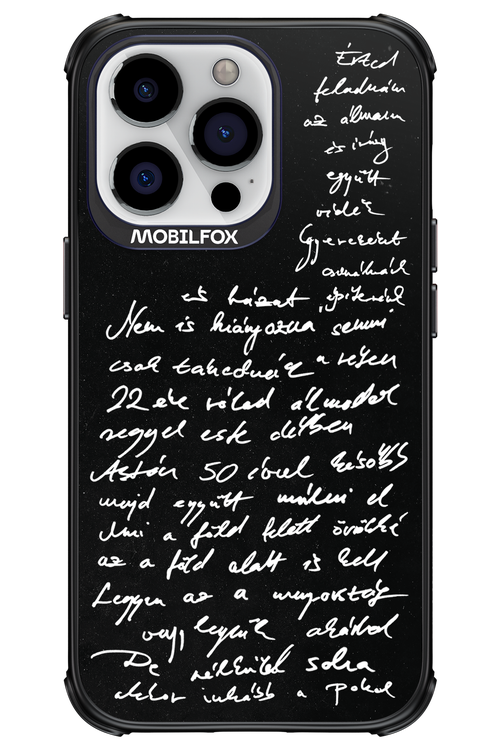 MOBILFOX
Érted
feladnám
az álmaim
és így
együtt
vidék
Gyereként
csinálnánk
és házat építenénk
Nem is hiányozna semmi
csak takednék a
22 éve rólad álmodok
reggel este délben
Aztán 50 évvel később
majd együtt múlni el
Ami a föld felett örökké
az a föld alatt is kell
Legyen az a mennyország
vagy legyünk akárhol
De nélküled soha
akkor inkább a Pokol